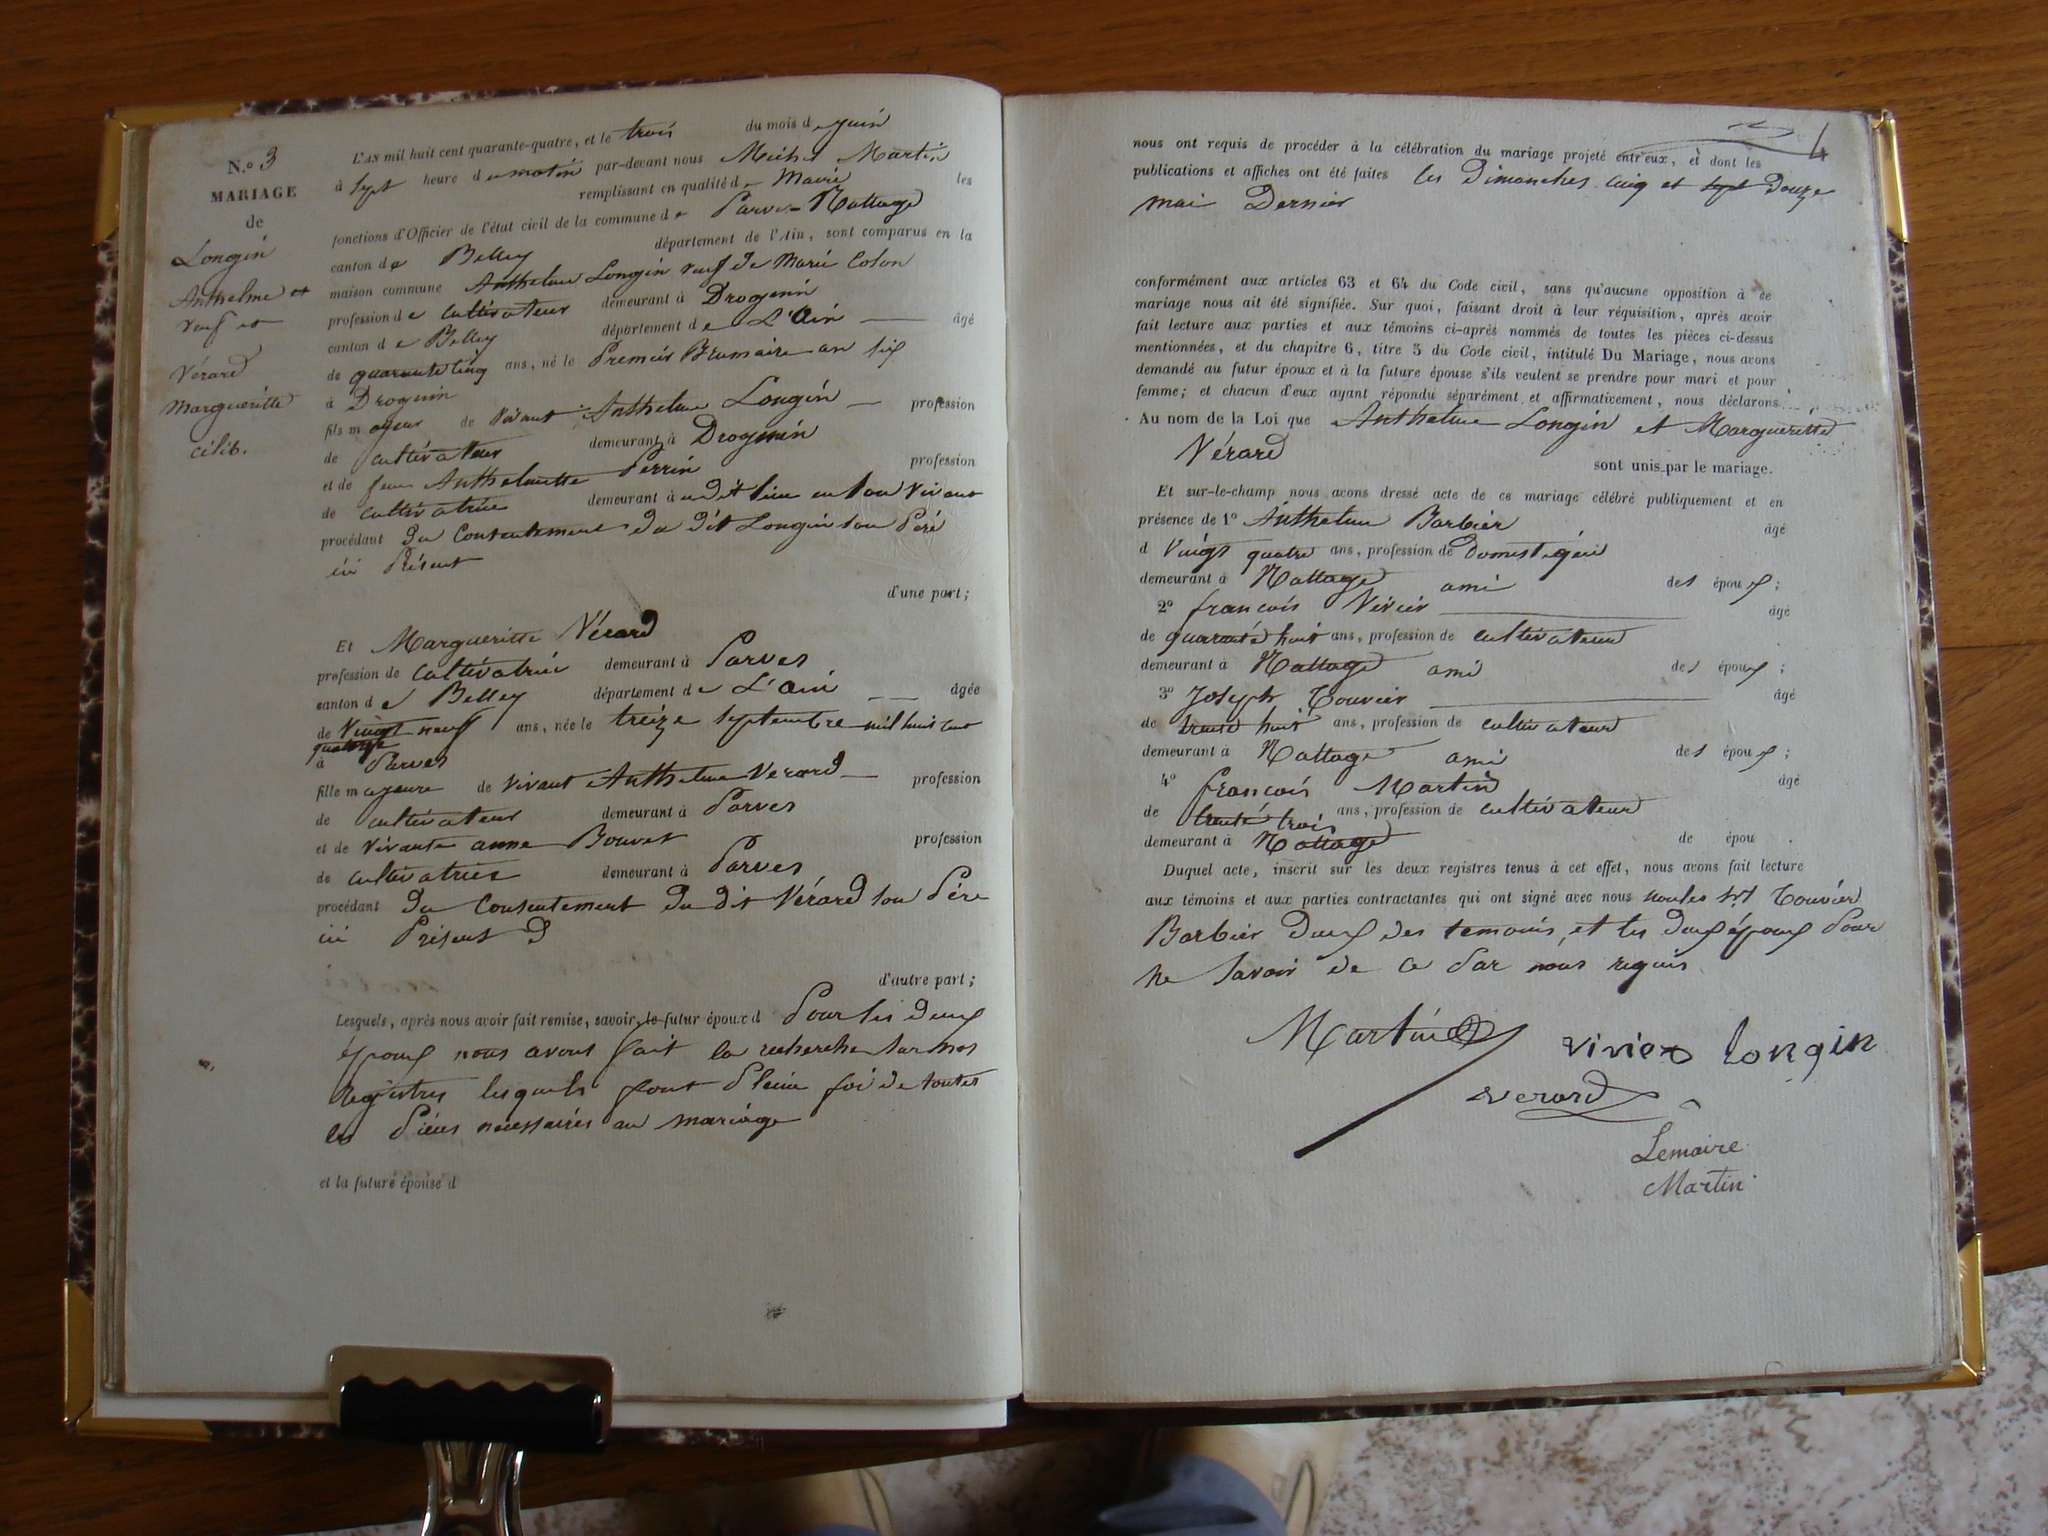 N.º 3
MARIAGE
de
Longin
Anthelme et
veuf et
Vérard
Margueritte
célib.
L'AN mil huit cent quarante-quatre, et le trois du mois de juin
à sept heure du matin par-devant nous Michel Martin
remplissant en qualité de Maire les
fonctions d'Officier de l'état civil de la commune de Parves Nattage
canton de Belley département de l'Ain, sont comparus en la
maison commune Anthelme Longin veuf de Marie Colon
profession de cultivateur demeurant à Drogenin
canton de Belley département de L'Ain âgé
de quarante cinq ans, né le Premier Brumaire an six
à Drogenin
fils majeur de vivant Anthelme Longin profession
de cultivateur demeurant à Drogenin
et de feue Anthelmette Perrin profession
de cultivatrice demeurant à udit lieu en son vivant
procédant du Consentement du dit Longin son Père
ici Présent
d'une part;
Et Margueritte Vérard
profession de cultivatrice demeurant à Parves
canton de Belley département de L'Ain âgée
de Vingt neuf ans, née le treize septembre mil huit cent
quatorze
à Parves
fille majeure de vivant Anthelme Verard profession
de cultivateur demeurant à Parves
et de vivante anne Bouvet profession
de cultivatrice demeurant à Parves
procédant du Consentement du dit Vérard son Père
ici Présent d
d'autre part;
Lesquels, après nous avoir fait remise, savoir, le futur époux d Pour les deux
époux nous avons fait la recherche sur nos
registres lesquels font Pleine foi de toutes
les Pièces nécessaires au mariage
et la future épouse d
4
nous ont requis de procéder à la célébration du mariage projeté entr'eux, et dont les
publications et affiches ont été faites les Dimanches cinq et sept Douze
mai Dernier
conformément aux articles 63 et 64 du Code civil, sans qu'aucune opposition à ce
mariage nous ait été signifiée. Sur quoi, faisant droit à leur réquisition, après avoir
fait lecture aux parties et aux témoins ci-après nommés de toutes les pièces ci-dessus
mentionnées, et du chapitre 6, titre 5 du Code civil, intitulé Du Mariage, nous avons
demandé au futur époux et à la future épouse s'ils veulent se prendre pour mari et pour
femme; et chacun d'eux ayant répondu séparément et affirmativement, nous déclarons
Au nom de la Loi que Anthelme Longin et Margueritte
Vérard
sont unis par le mariage.
Et sur-le-champ nous avons dressé acte de ce mariage célébré publiquement et en
présence de 1º Anthelme Barbier âgé
d Vingt quatre ans, profession de Domestique
demeurant à Nattage ami des époux;
2º françois Vivier âgé
de quarante huit ans, profession de cultivateur
demeurant à Nattage ami des époux;
3º Joseph Touvier âgé
de trente huit ans, profession de cultivateur
demeurant à Nattage ami des époux;
4º françois Martin âgé
de trente trois ans, profession de cultivateur
demeurant à Nattage de épou .
Duquel acte, inscrit sur les deux registres tenus à cet effet, nous avons fait lecture
aux témoins et aux parties contractantes qui ont signé avec nous Touvier
Barbier deux des temoins, et les deux époux Pour
ne savoir de ce Par nous requis
Martin vivier longin
verard
Lemaire
Martin